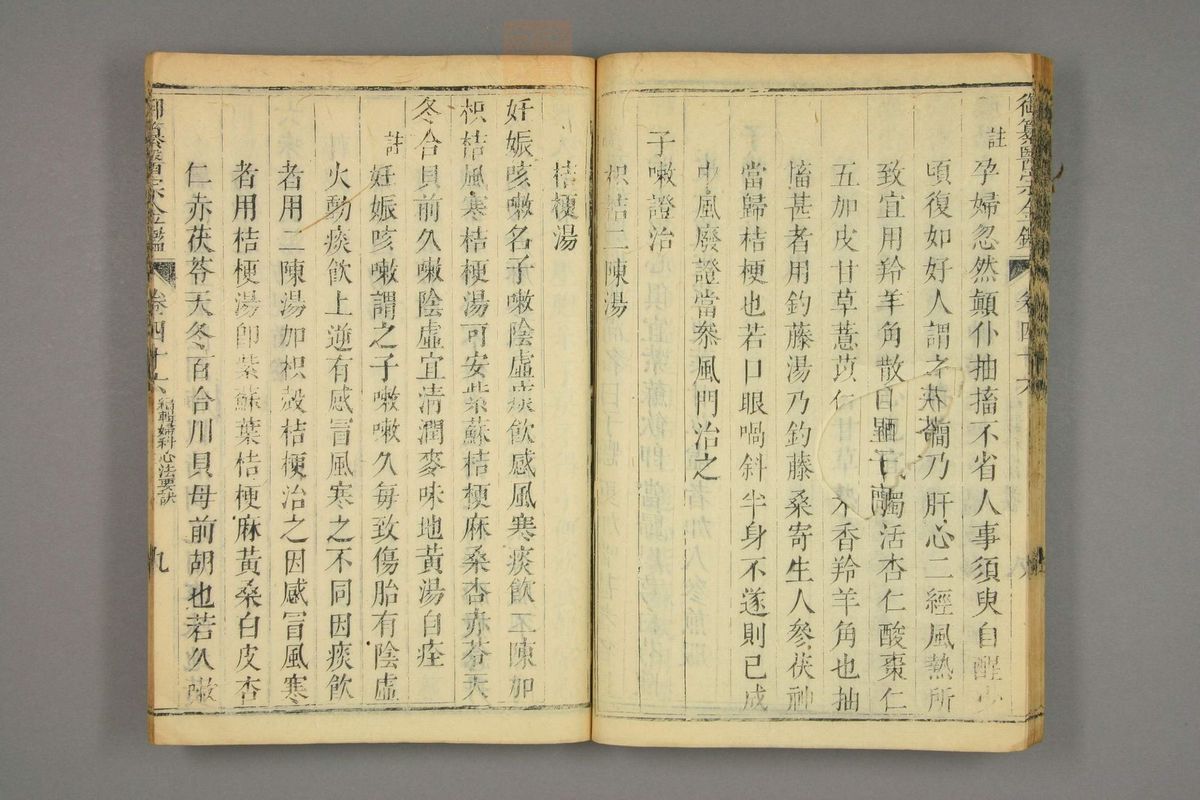 御纂醫宗金鑑 卷四十六
註
孕婦忽然顛仆抽搐不省人事須臾自醒少
頃復如好人謂之子癇乃肝心二經風熱所
致宜用羚羊角散獨活杏仁酸棗仁
五加皮甘草薏苡仁木香羚羊角也抽
搐甚者用鈎藤湯乃鈎藤桑寄生人參茯神
當歸桔梗也若口眼喎斜半身不遂則已成
中風廢證當叅風門治之
子嗽證治
枳桔二陳湯
桔梗湯
妊娠咳嗽名子嗽陰虛痰飲感風寒痰飲二陳加
枳桔風寒桔梗湯可安紫蘇桔梗麻桑杏赤苓天
冬合貝前久嗽陰虛宜清潤麥味地黃湯自痊
註
妊娠咳嗽謂之子嗽嗽久每致傷胎有陰虛
火動痰飲上逆有感冒風寒之不同因痰飲
者用二陳湯加枳殼桔梗治之因感冒風寒
者用桔梗湯卽紫蘇葉桔梗麻黃桑白皮杏
仁赤茯苓天冬百合川貝母前胡也若久嗽
御纂醫宗金鑑 卷四十六 編輯婦科心法要訣 九